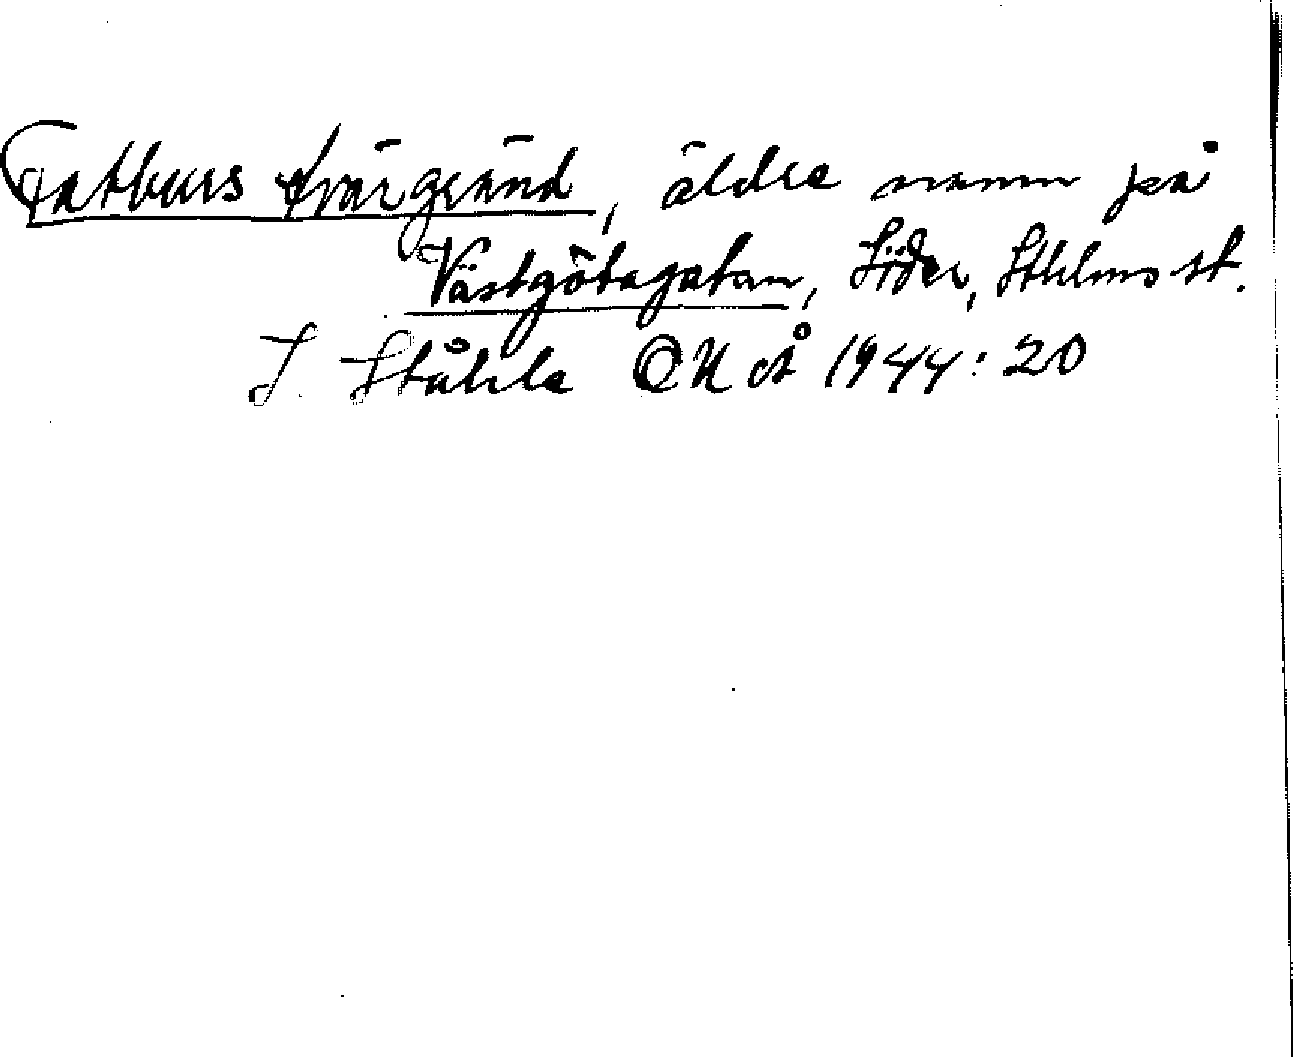 Fatburs tvärgränd, äldre namn på
Västgötagatan, Söder, Sthlms st.
I. Ståhle ONÅ 1944:20